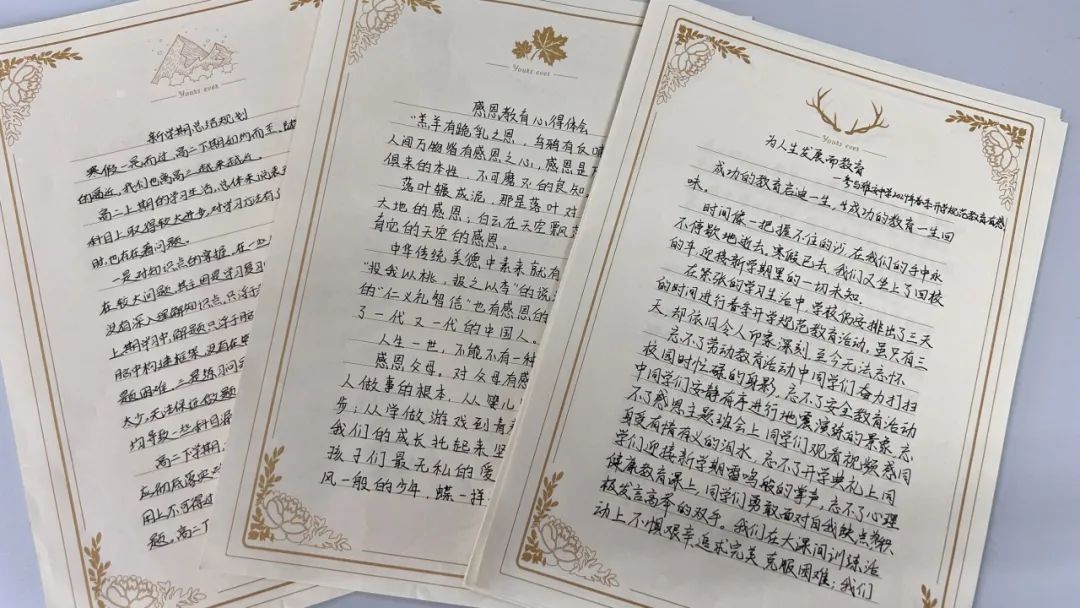 Yours ever
新学期总结规划
寒假一晃而过,高二下期如约而至,
的逼近,我们也离高三越来越近。
高二上期的学习生活,总体来说表
科目上取得较大进步,对学习方法有
时,也存在着问题。
一是对知识点的掌握,在一
在较大问题,其主因是学习复习
没有深入理解知识点,只浮于
上期学习中,解题只浮于脑
脑中构建框架,没有在
题困难。二是练习问
太少,无法保证做题
均导致一些科目
高二下学期,
应彻底落实
用上不可得过
题。高二下
Yours ever
感恩教育心得体会
“羔羊有跪乳之恩,乌鸦有反哺
人间万物皆有感恩之心,感恩是
俱来的本性,不可磨灭的良知
落叶辗成泥,那是落叶对
大地的感恩;白云在天空飘
有它的天空的感恩。
中华传统美德中素来就有
“投我以桃,报之以李”的说
的“仁义礼智信”也有感恩的
了一代又一代的中国人。
人生一世,不能不有一种
感恩父母。对父母有感
人做事的根本,从婴儿
步;从学做游戏到青
我们的成长托起来坚
孩子们最无私的爱
风一般的少年,蝶一样
Yours ever
为人生发展而教育
—参与雅安中学2024年春季开学规范教育有感
成功的教育启迪一生,生成功的教育一生回
味。
时间像一把握不住的沙,在我们的手中永
不停歇地逝去。寒假已去,我们又坐上了回校
的车,迎接新学期里的一切未知。
在紧张的学习生活中,学校仍安排出了三天
的时间进行春季开学规范教育活动,虽只有三
天,却依旧令人印象深刻,至今无法忘怀。
忘不了劳动教育活动中同学们奋力打扫
校园时忙碌的身影,忘不了安全教育活动
中同学们安静有序进行地震演练的景象,忘
不了感恩主题班会上同学们观看视频感同
身受有情有义的泪水,忘不了开学典礼上同
学们迎接新学期雷鸣般的掌声,忘不了心理
健康教育课上,同学们勇敢面对自我缺点,积
极发言高举的双手。我们在大课间训练活
动上不惧艰辛,追求完美,克服困难;我们